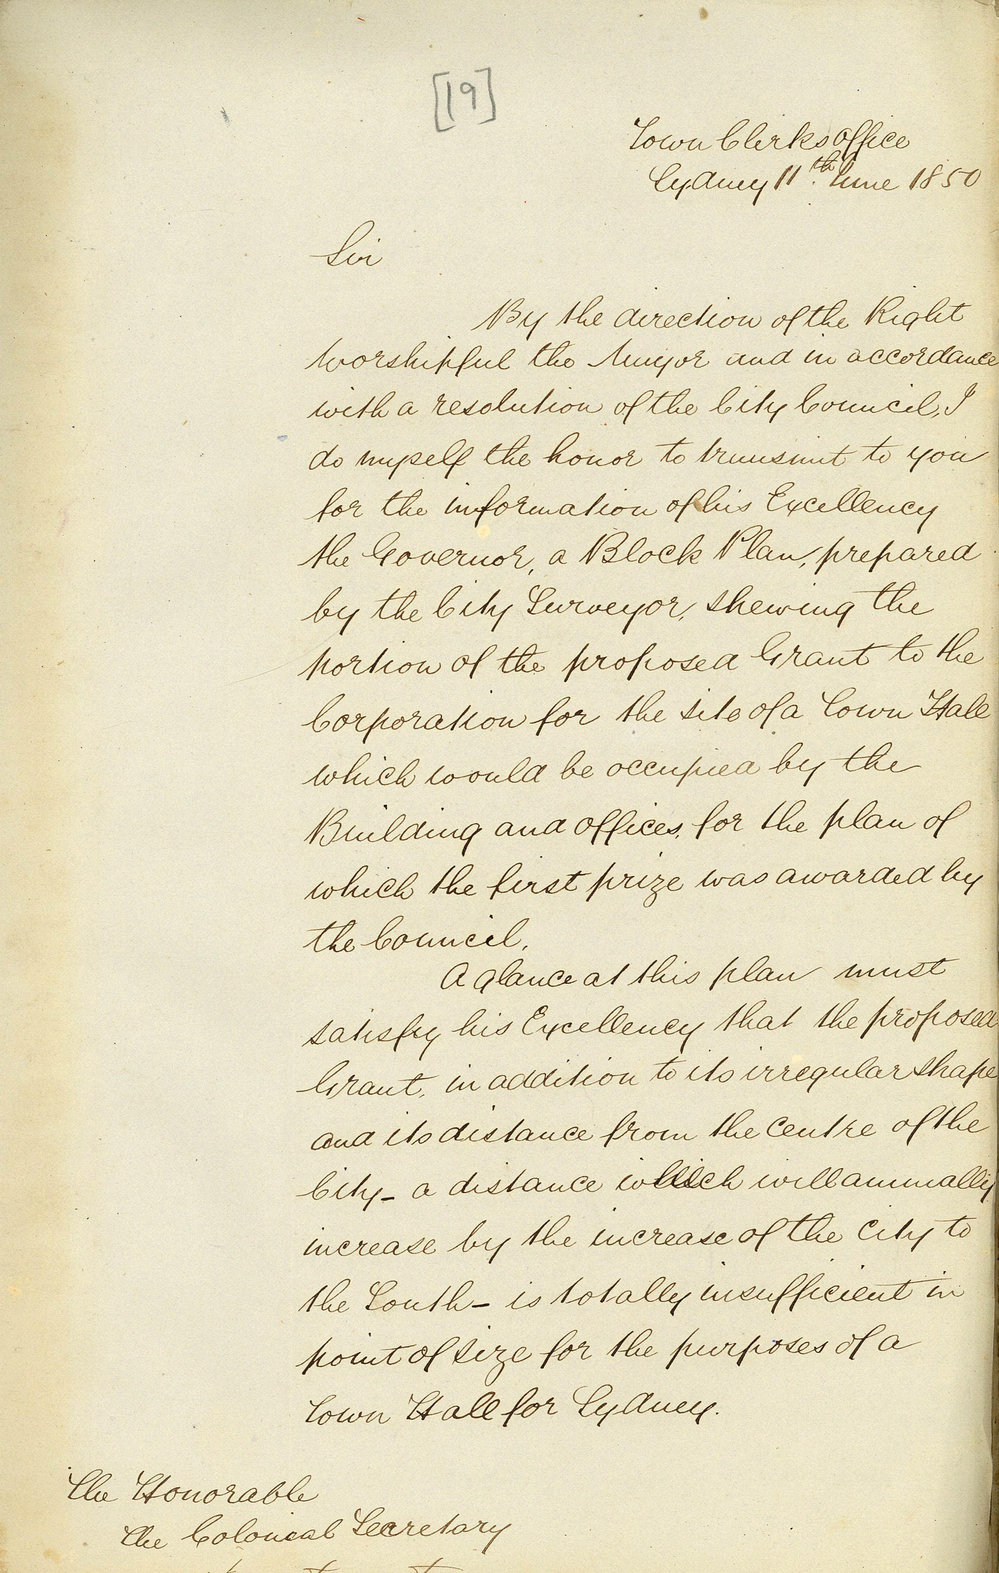 [19]
Town Clerks office
Sydney 11th. June 1850
Sir
By the direction of the Right
Worshipful the Mayor and in accordance
with a resolution of the City Council, I
do myself the honor to transmit to you
for the information of his Excellency
the Governor, a Block Plan, prepared
by the City Surveyor, shewing the
portion of the proposed Grant to the
Corporation for the site of a Town Hall
which would be occupied by the
Building and offices, for the plan of
which the first prize was awarded by
the Council.
A glance at this plan must
satisfy his Excellency that the proposed
Grant, in addition to its irregular shape
and its distance from the centre of the
City - a distance which will annually
increase by the increase of the City to
the South - is totally insufficient in
point of size for the purposes of a
Town Hall for Sydney.
The Honorable
The Colonial Secretary